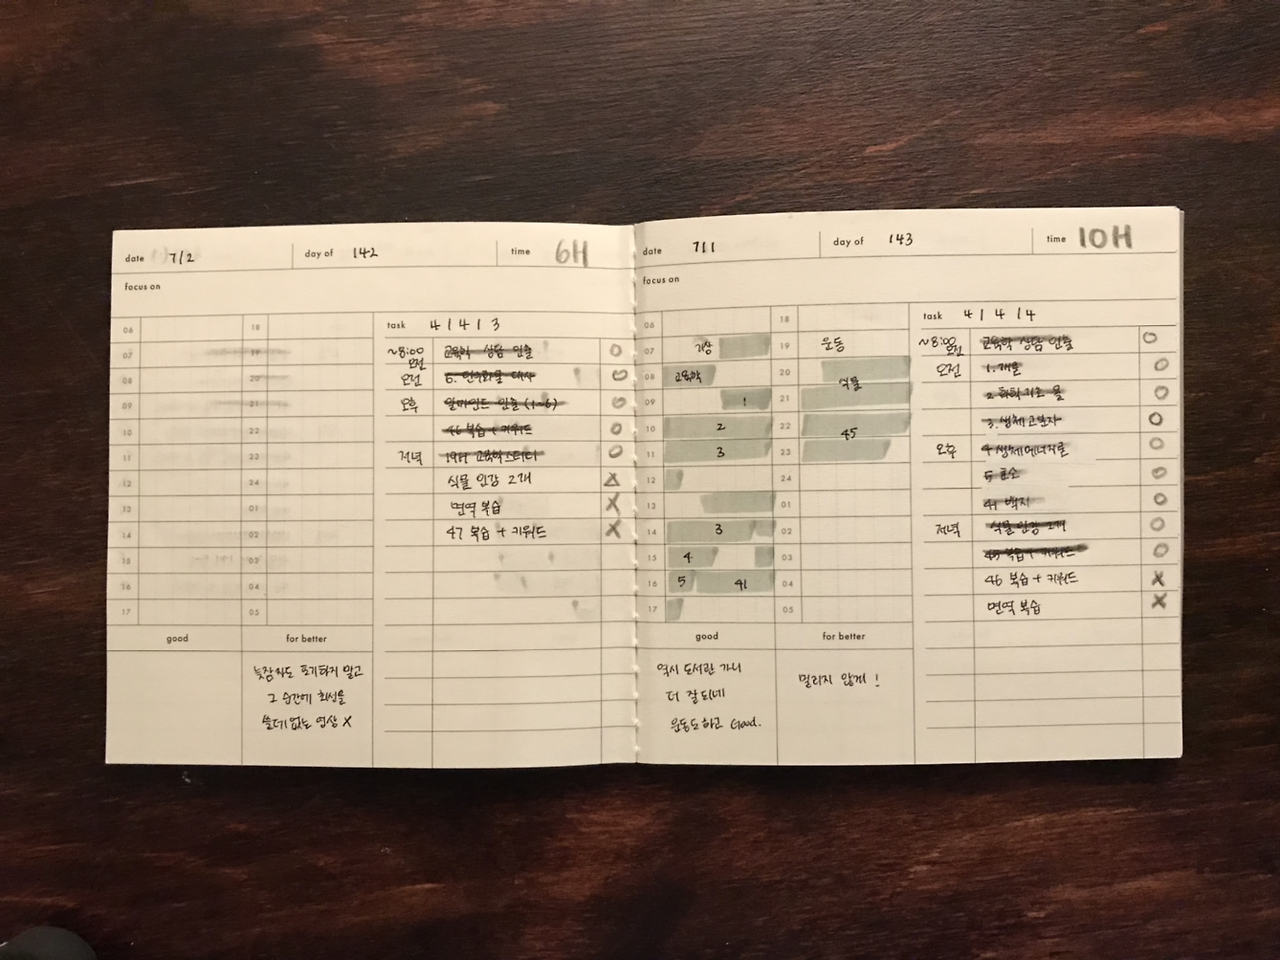 date 7/2 day of 142 time 6H
focus on
task 4 1 4 1 3
06 18
07 19
08 20
09 21
10 22
11 23
12 24
13 01
14 02
15 03
16 04
17 05
~8:00 오전 교육학 상담 인출 O
오전 6. 탄수화물 대사 O
오후 인출 (1~6) O
46 복습 + 키워드 O
저녁 교육학스터디 O
식물 인강 2개 △
면역 복습 X
47 복습 + 키워드 X
good for better
늦잠자도 포기하지 말고
그 순간에 최선을
쓸데없는 영상 X
date 7/1 day of 143 time 10H
focus on
task 4 1 4 1 4
06 18
07 기상 19 운동
08 교육학 20 식물
09 1 21
10 2 22 45
11 3 23
12 24
13 01
14 3 02
15 4 03
16 5 41 04
17 05
~8:00 오전 교육학 상담 인출 O
오전 1. 개울 O
2. 화학기초 물 O
3. 생체고분자 O
오후 4 생체에너지론 O
5 효소 O
41 백지 O
저녁 식물 인강 2개 O
45 복습 + 키워드 O
46 복습 + 키워드 X
면역 복습 X
good for better
역시 도서관 가니
더 잘되네
운동도하고 Good.
밀리지 않게 !